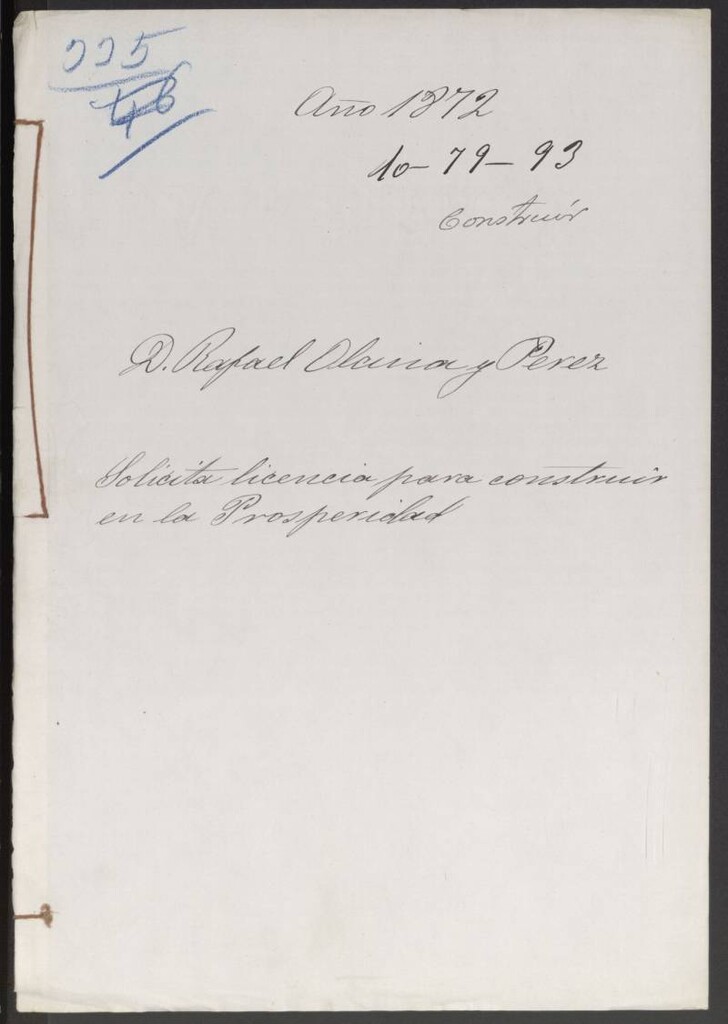 225
46
Año 1872
10-79-93
Construir
D. Rafael Alcina y Perez
Solicita licencia para construir
en la Prosperidad